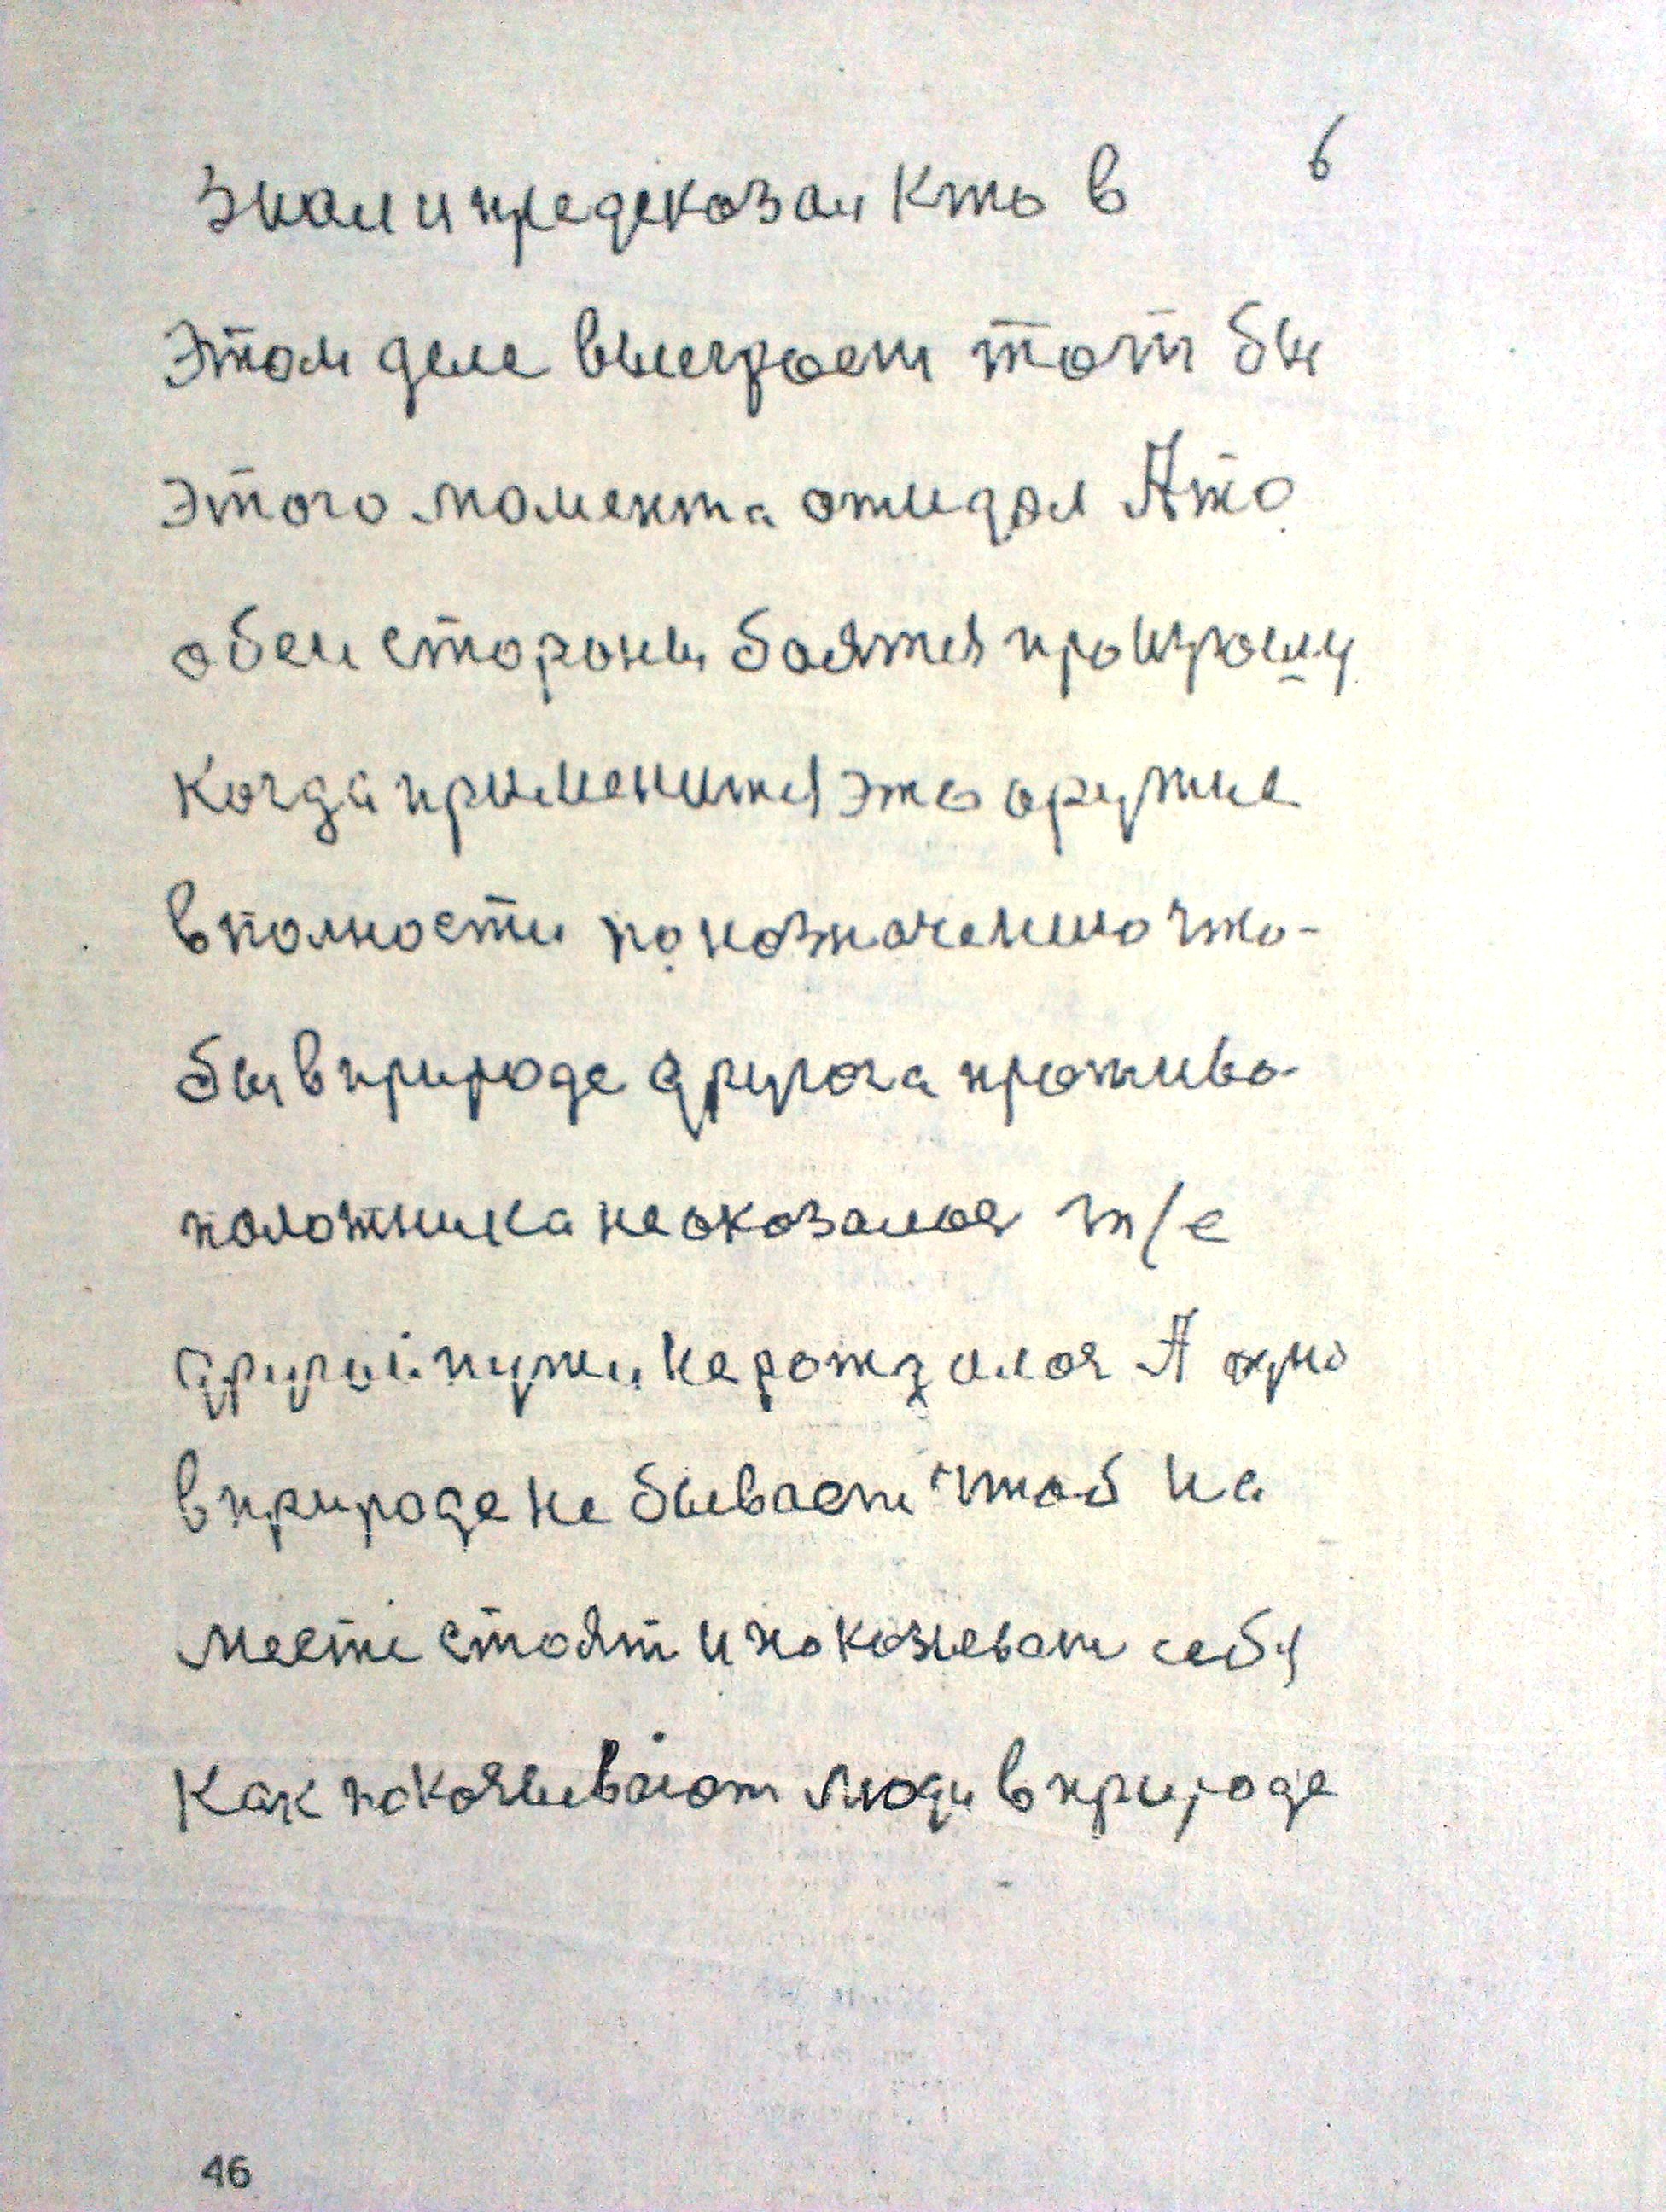 6
знал и предсказал кто в
этом деле выиграет тот бы
этого момента ожидал А то
обеи стороны боятся
когда применится это оружие
вполности по назначению что-
бы в природе другога противо-
положника не оказалося т/е
другой пути не рождалося А
в природе не бывает чтоб на
месте стоят и показывают себя
Как показывают люди в природе
46